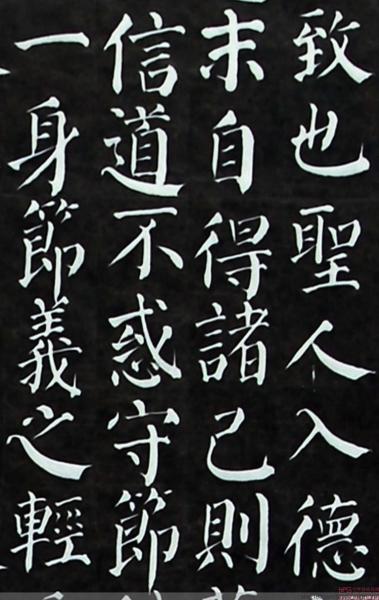 致也聖人入德
末自得諸己則
信道不惑守節
一身節義之輕